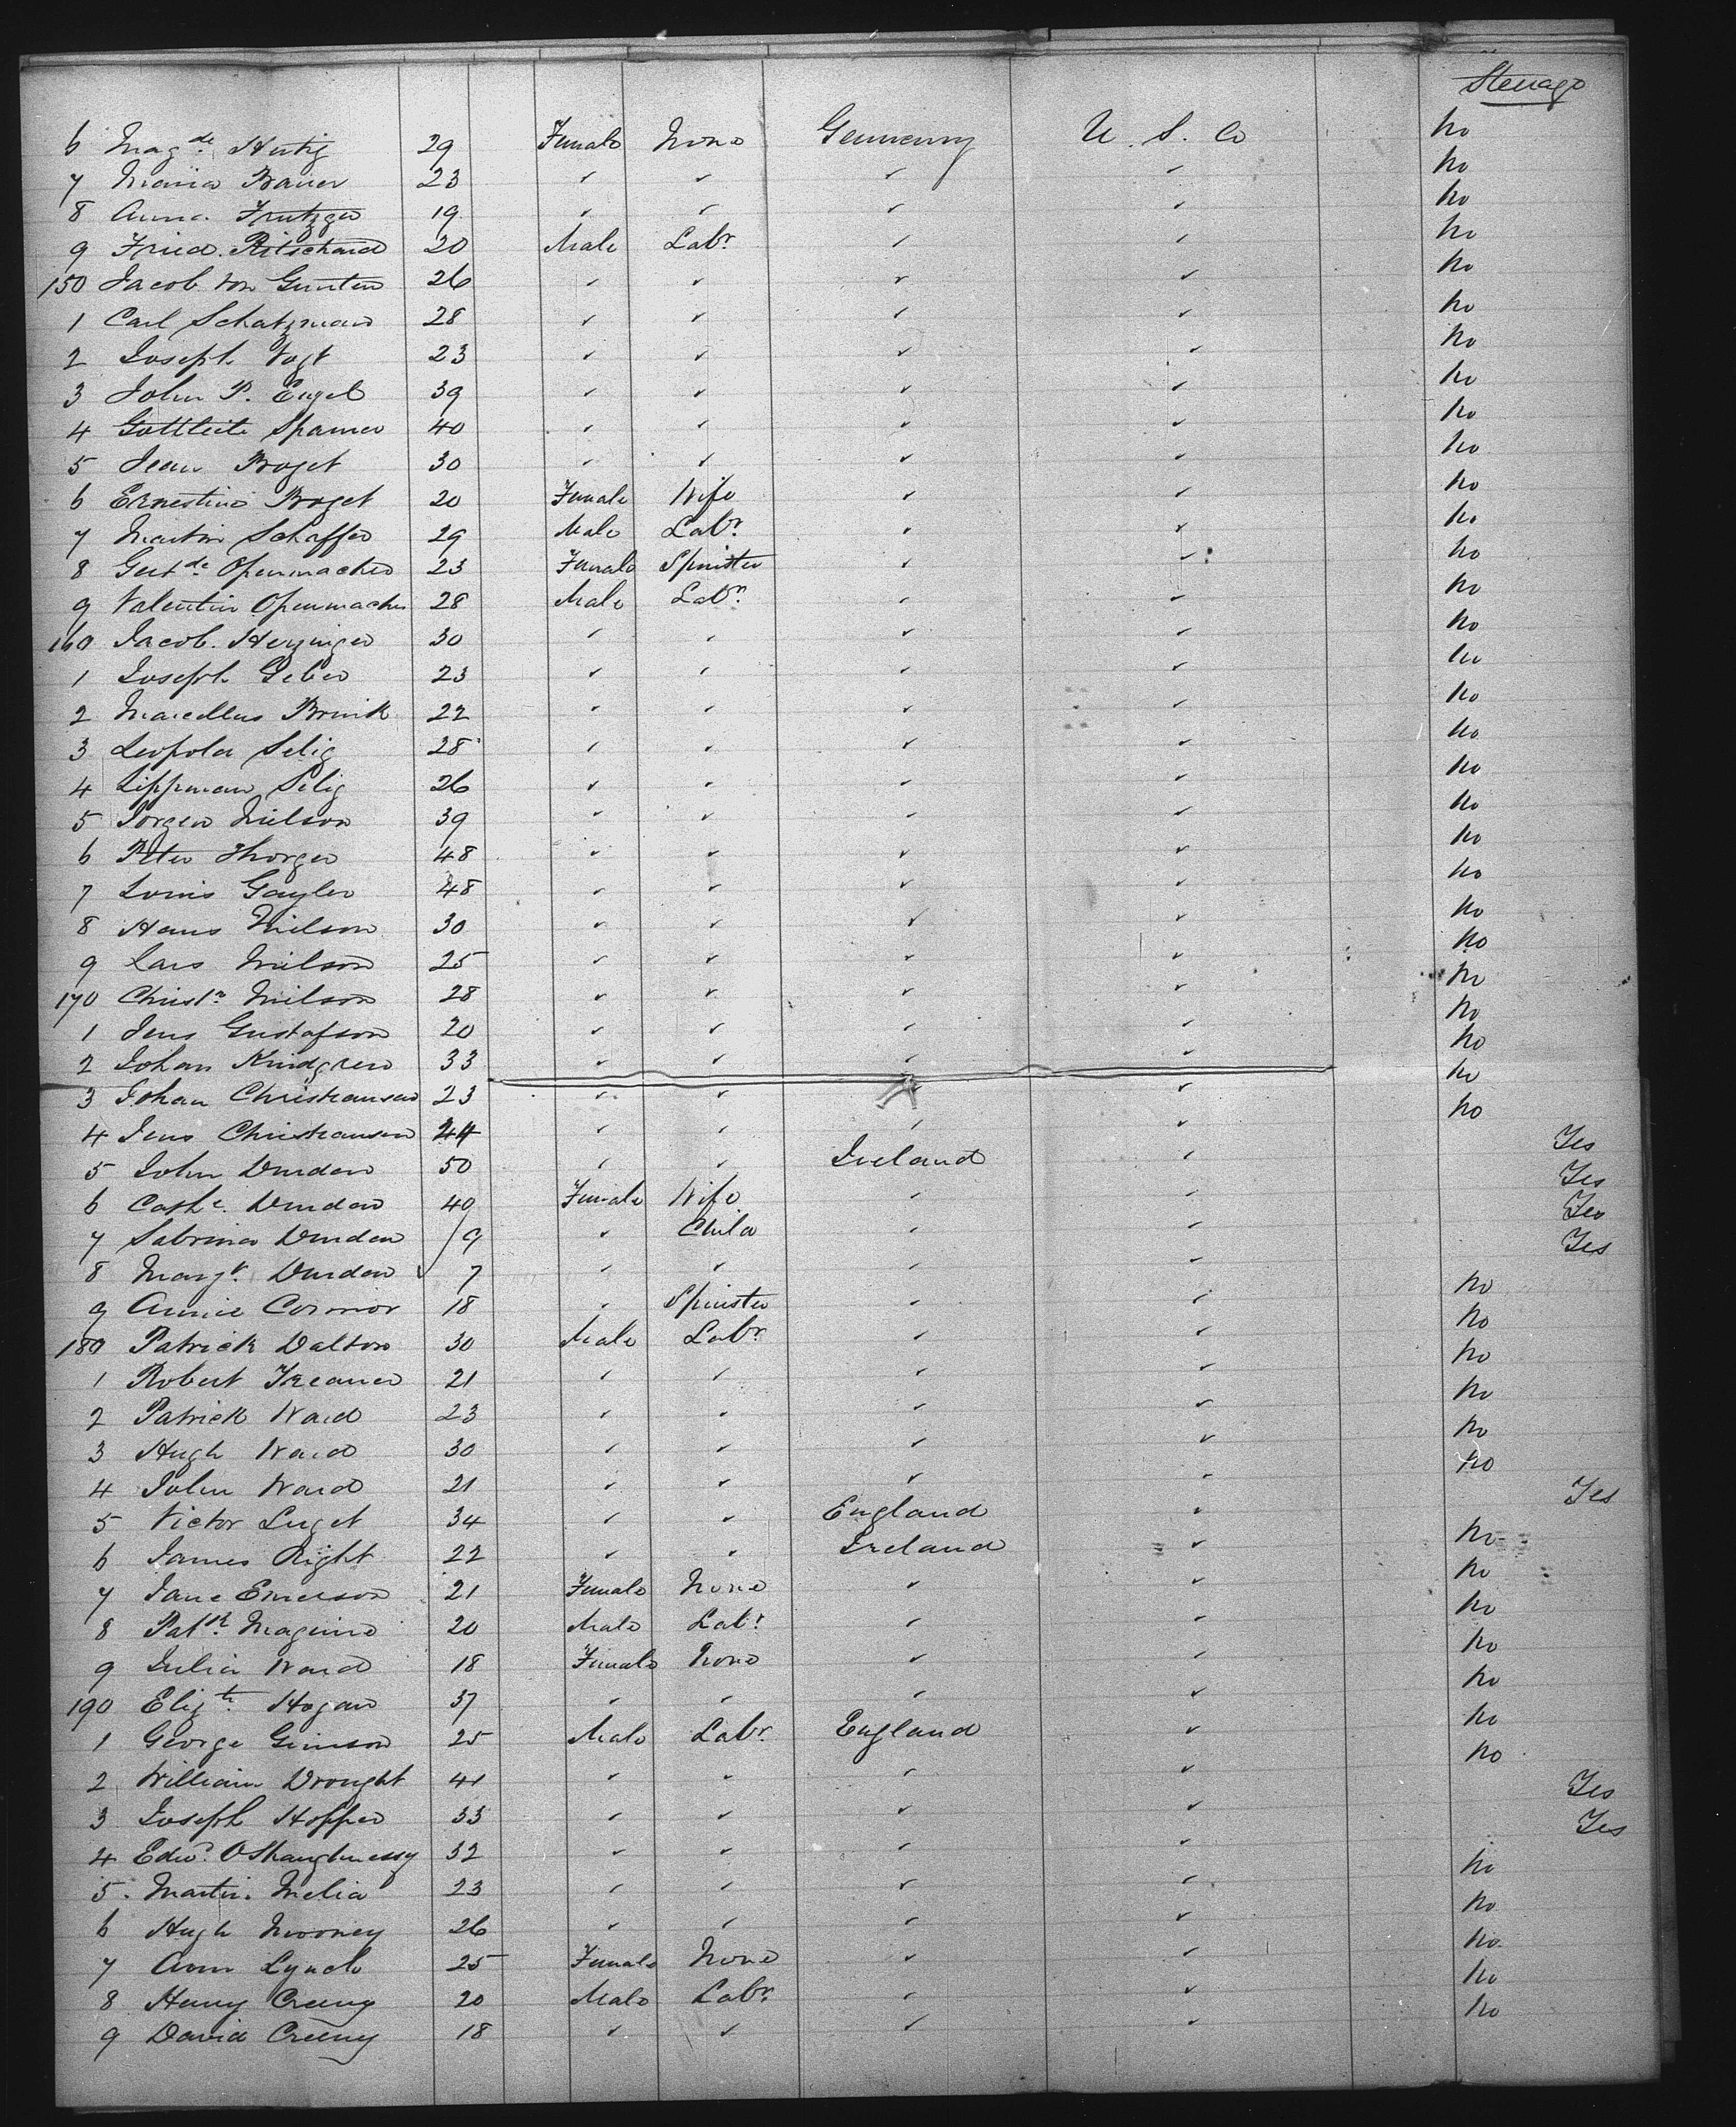 Steerage
6 Magde. Hutig 29 Female None Germany U. S. Co No
7 Maria Bauer 23 ✓ ✓ ✓ ✓ No
8 Anna 19 ✓ ✓ ✓ ✓ No
9 Fried. Ritschard 20 Male Labr. ✓ ✓ No
150 Jacob von Gunten 26 ✓ ✓ ✓ ✓ No
1 Carl Schatzman 28 ✓ ✓ ✓ ✓ No
2 Joseph Vogt 23 ✓ ✓ ✓ ✓ No
3 John P. Engel 39 ✓ ✓ ✓ ✓ No
4 Gottleib Spanner 40 ✓ ✓ ✓ ✓ No
5 Jean Broget 30 ✓ ✓ ✓ ✓ No
6 Ernestine Broget 20 Female Wife ✓ ✓ No
7 Martin Schaffer 29 Male Labr. ✓ ✓ No
8 Gertde. Openmacher 23 Female Spinster ✓ ✓ No
9 Valentin Openmacher 28 Male Labr. ✓ ✓ No
160 Jacob. Herzinger 30 ✓ ✓ ✓ ✓ No
1 Joseph Geber 23 ✓ ✓ ✓ ✓ No
2 Marcellus Brink 22 ✓ ✓ ✓ ✓ No
3 Leopold Selig 28 ✓ ✓ ✓ ✓ No
4 Lippman Selig 26 ✓ ✓ ✓ ✓ No
5 Jorgen Nielson 39 ✓ ✓ ✓ ✓ No
6 Peter Thorger 48 ✓ ✓ ✓ ✓ No
7 Louis Gayler 48 ✓ ✓ ✓ ✓ No
8 Hans Nielson 30 ✓ ✓ ✓ ✓ No
9 Lars Nielson 25 ✓ ✓ ✓ ✓ No
170 Christn. Nielson 28 ✓ ✓ ✓ ✓ No
1 Jens Gustafson 20 ✓ ✓ ✓ ✓ No
2 Johan Kindgren 33 ✓ ✓ ✓ ✓ No
3 Johan Christiansen 23 ✓ ✓ ✓ ✓ No
4 Jens Christiansen 24 ✓ ✓ ✓ ✓ No
5 John Durdan 50 ✓ ✓ Ireland ✓ Yes
6 Cathe. Durdan 40 Female Wife ✓ ✓ Yes
7 Sabrina Durdan 9 ✓ Child ✓ ✓ Yes
8 Margt. Durdan 7 ✓ ✓ ✓ ✓ Yes
9 Annie Connor 18 ✓ Spinster ✓ ✓ No
180 Patrick Dalton 30 Male Labr. ✓ ✓ No
1 Robert Treanor 21 ✓ ✓ ✓ ✓ No
2 Patrick Ward 23 ✓ ✓ ✓ ✓ No
3 Hugh Ward 30 ✓ ✓ ✓ ✓ No
4 John Ward 21 ✓ ✓ ✓ ✓ No
5 Victor Luget 34 ✓ ✓ England ✓ Yes
6 James Right 22 ✓ ✓ Ireland ✓ No
7 Jane Emerson 21 Female None ✓ ✓ No
8 Patk. Maguire 20 Male Labr ✓ ✓ No
9 Julia Ward 18 Female None ✓ ✓ No
190 Elizth. Hogan 37 ✓ ✓ ✓ ✓ No
1 George Gimson 25 Male Labr. England ✓ No
2 William Drought 41 ✓ ✓ ✓ ✓ No
3 Joseph Hopper 33 ✓ ✓ ✓ ✓ Yes
4 Edwd. O'Shaughnessy 32 ✓ ✓ ✓ ✓ Yes
5 Martin Melia 23 ✓ ✓ ✓ ✓ No
6 Hugh Mooney 26 ✓ ✓ ✓ ✓ No
7 Ann Lynch 25 Female None ✓ ✓ No
8 Henry Creeny 20 Male Labr. ✓ ✓ No
9 David Creeny 18 ✓ ✓ ✓ ✓ No